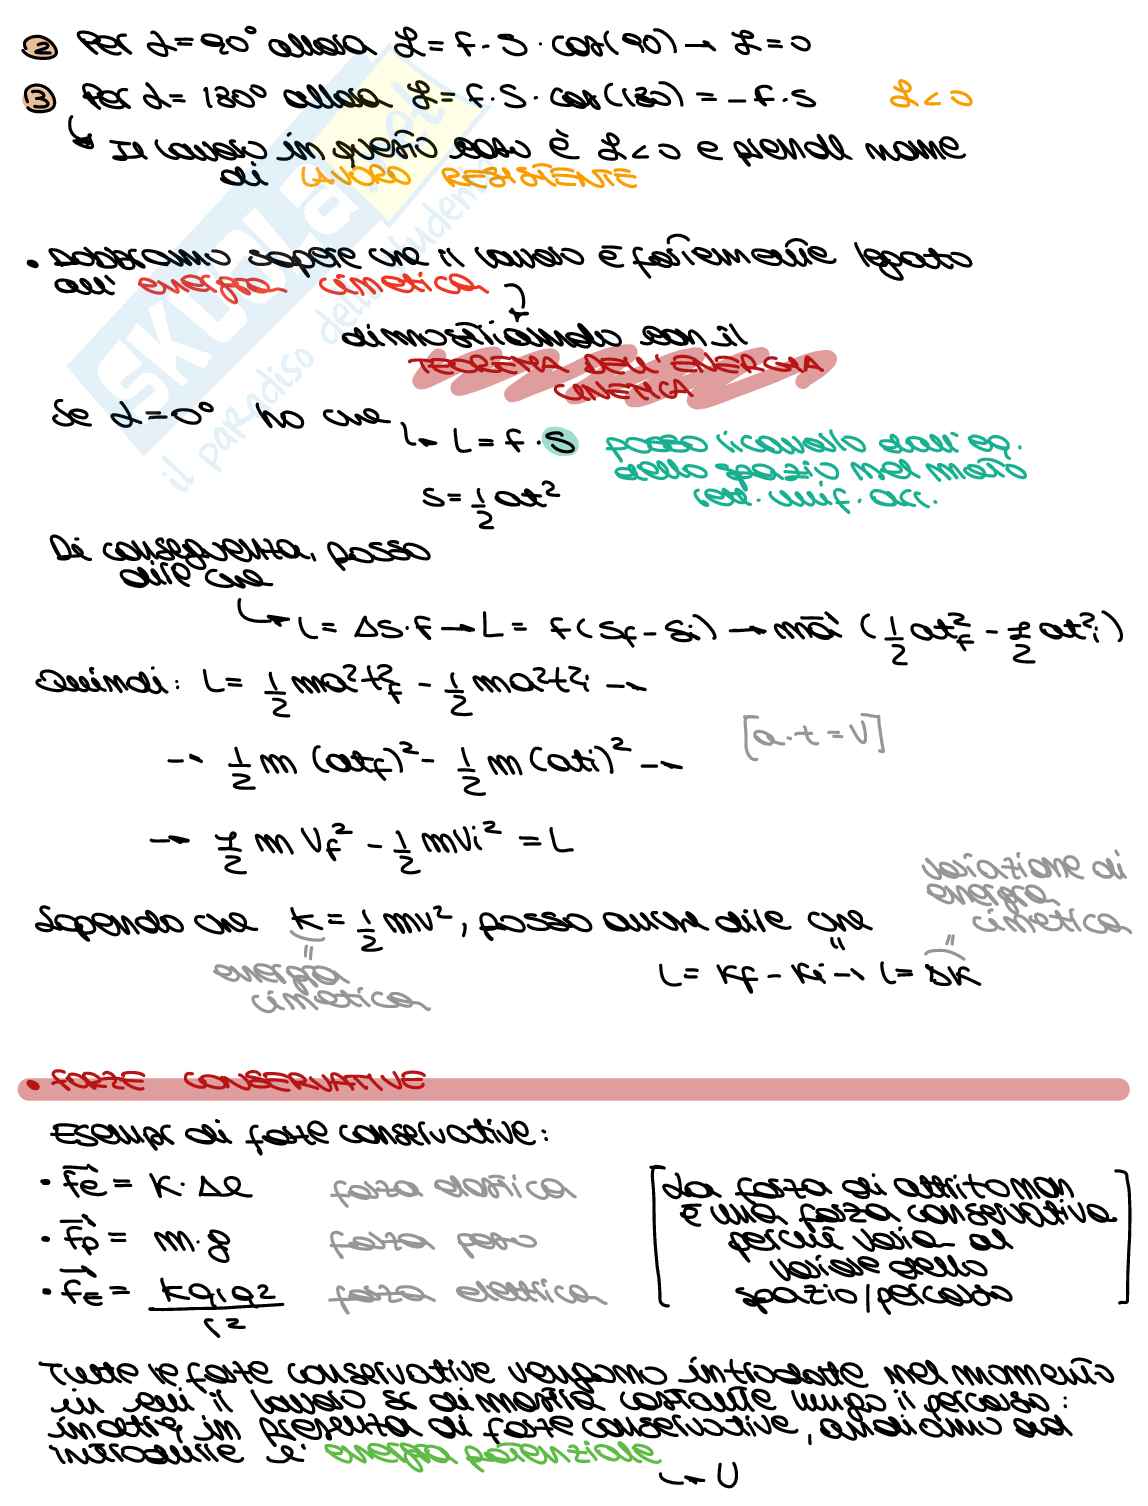 ② Per α=90° allora L = F · S · cos(90) → L = 0
③ Per α= 180° allora L = F · S · cos(180) = - F · S L < 0
↳ Il lavoro in questo caso è L < 0 e prende nome
di LAVORO RESISTENTE
• Dobbiamo sapere che il lavoro è fortemente legato
all' energia cinetica
dimostriamolo con il
TEOREMA DELL' ENERGIA
CINETICA
Se α = 0° ho che
↳ L = F · S posso ricavarlo dall' eq.
dello spazio nel moto
S = 1/2 at² rett. unif. acc.
Di conseguenza, posso
dire che
↳ L = ΔS · F → L = F (Sf - Si) → ma (1/2 at²f - 1/2 at²i)
Quindi: L = 1/2 ma²t²f - 1/2 ma²t²i →
[a · t = V]
→ 1/2 m (atf)² - 1/2 m (ati)² →
→ 1/2 m Vf² - 1/2 mVi² = L
variazione di
energia
cinetica
Sapendo che K = 1/2 mv², posso anche dire che
energia
cinetica
L = Kf - Ki → L = ΔK
• FORZE CONSERVATIVE
Esempi di forze conservative:
• Fe = K · Δl forza elastica
• Fp = m · g forza peso
• FE = Kq1q2 / r² forza elettrica
[La forza di attrito non
è una forza conservativa
perchè varia al
variare dello
spazio/percorso]
Tutte le forze conservative vengono introdotte nel momento
in cui il lavoro si dimostra costante lungo il percorso:
inoltre, in presenza di forze conservative, andiamo ad
introdurre l' energia potenziale
↳ U
SKUOLA.net
il paradiso dello studente